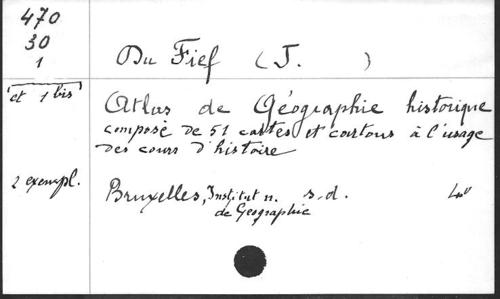 470
30
1
et 1 bis
Du Fief (J. )
Atlas de Géographie historique
composé de 51 cartes et cartons à l'usage
des cours d'histoire
2 exempl.
Bruxelles, Institut n. s.d. 4°
de Geographie